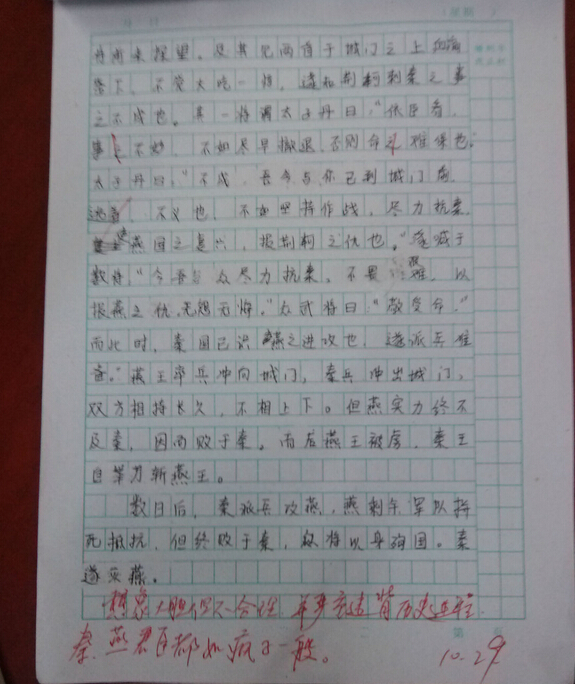 丹前来探望。及其见两首于城门之上血滴
落下，不觉大吃一惊，遂知荆轲刺秦之事
之不成也。其一将谓太子丹曰：“依臣看，
事不妙，不如尽早撤退，否则命难保也。
太子丹曰：“不成，吾今与你已到城门前，
逃者，不义也，不如坚持作战，尽力抗秦，
燕国之复兴，报荆轲之仇也。”遂喊于
数将：“今吾 众尽力抗秦，不畏 难，以
报燕之仇，无怨无悔。”众武将曰：“敬受命。”
而此时，秦国已识燕之进攻也，遂派兵准
备。”燕王率兵冲向城门，秦兵冲出城门，
双方相持长久，不相上下。但燕实力终不
及秦，因而败于秦。而后燕王被虏，秦王
自举刀斩燕王。
数日后，秦派兵攻燕，燕剩余军队拼
死抵抗，但终败于秦，众将以身殉国。秦
遂灭燕。
想象大胆但不合理，并严重违背历史进程
秦、燕君臣都如疯子一般。
10.29